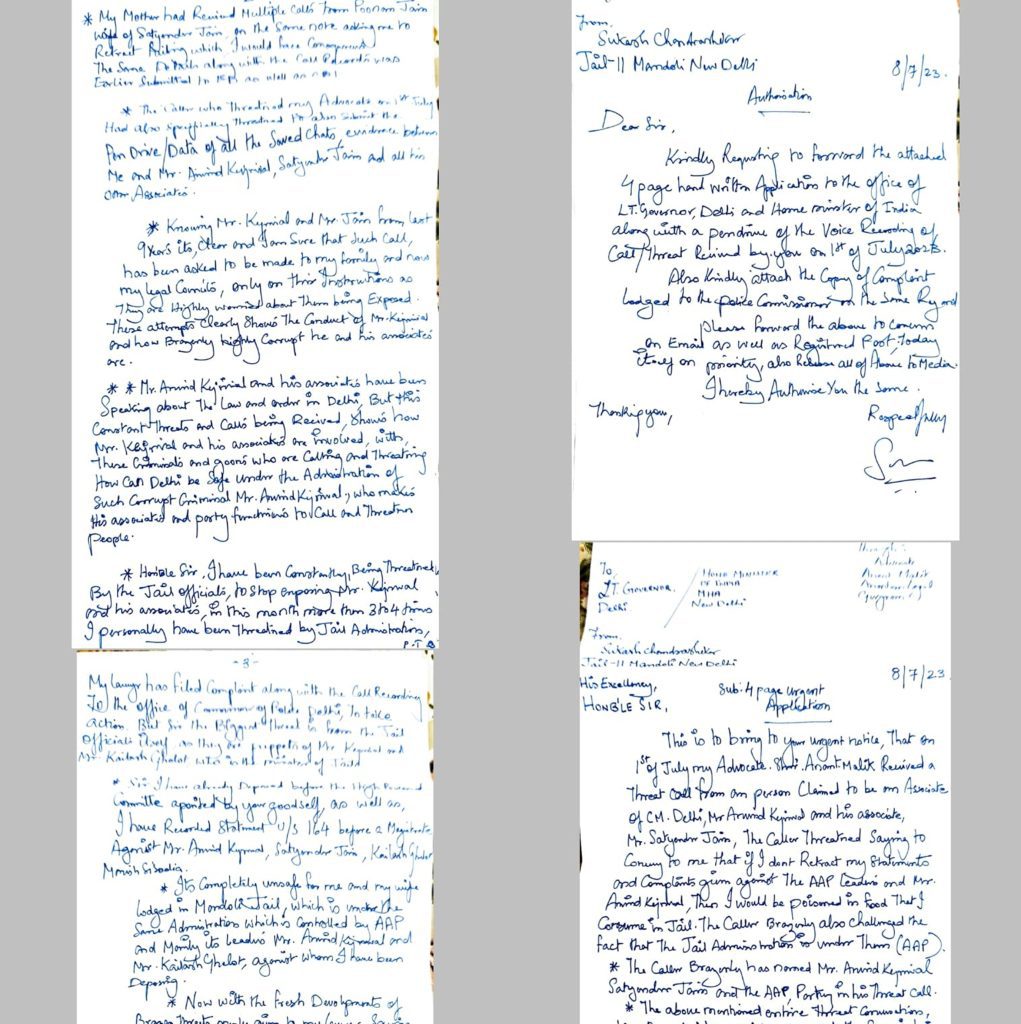 * My Mother had Recived Multiple Calls From Poonam Jain
wife of Satyendar Jain, on the Same note asking me to
Retract failing which I would face Consequences
The Same Details along with the Call Records was
Earlier Submitted to
* The Caller who Threatned my Advocate on 1st July
Had also Specifically Threatned to also Submit the
Pen Drive/Data of all the Saved Chats, evidence between
Me and Mr. Arvind Kejrival, Satyendr Jain and all his
other Associates.
* Knowing Mr. Kejrival and Mr. Jain from last
9 Years its, Clear and I am Sure that Such Call,
has been asked to be made to my family and now
my legal Counils, only on Their Instructions as
They are Highly worried about Them being Exposed.
These attempts Clearly Shows The Conduct of Mr. Kejrival
and how Brazenly highly Corrupt he and his associates
are.
* * Mr. Arvind Kejrival and his associates have been
Speaking about The Law and order in Delhi, But this
Constant Threats and Calls being Recived, Shows how
Mr. Kejrival and his associates are involved, with,
These Criminals and goons who are Calling and Threatning
How Can Delhi be Safe under the Administration of
Such Corrupt Criminal Mr. Arvind Kejrival, who makes
His associates and party functions to Call and Threaten
People.
* Honble Sir, I have been Constantly, Being Threatned
By the Jail officials, to Stop exposing Mr. Kejrival
and his associates, in this month more then 3 to 4 times
I personally have been Threatned by Jail Administration,
P-T.O
-3-
My lawyer has filed Complaint along with the Call Recording
To the office of Commisioner of Police Delhi, To take
action. But Sir the Biggest Threat is from the Jail
officials itself, as they are puppets of Mr. Kejrival and
Mr. Kailash Ghelot who is the minister of Jails
* Sir I have already Deposed before the High Powered
Committe apointed by your goodself, as well as,
I have Recorded Statment U/s 164 before a Megistrate
Against Mr. Arvind Kejrival, Satyendar Jain, Kailash Ghelot
Manish Sisodia.
* Its Completely unsafe for me and my wife
lodged in Mandoli Jail, which is under the
Same Administration which is Controlled by AAP
and Mainly its Leaders Mr. Arvind Kejrival and
Mr. Kailash Ghelot, against whom I have been
Deposing.
* Now with the Fresh Devolpments of
From,
Sukash Chandrashekar
Jail-11 Mandoli New Delhi
8/7/23.
Authorisation
Dear Sir,
Kindly Requsting to forword the attached
4 page hand written Application to the office of
LT. Governor, Delhi and Home minister of India
along with a pendrive of the Voice Recording of
Call/Threat Recived by you on 1st of July 2023.
Also Kindly attach the Copy of Complaint
Lodged to the police Commissioner on the Same Regard
please forward the above to Concern
on Email as well as Registred Post, Today
itself on priority, also Release all of Above to Media.
I hereby Authorise You the Same.
Thanking you,
Respectfully
To,
LT. GOVERNOR.
Delhi
HOME MINISTER
OF INDIA
MHA
New Delhi
Through:
Advocate
Anant Malik
From,
Sukash Chandrashekar
Jail-11 Mandoli New Delhi
8/7/23
His Excellency,
HONBLE SIR,
Sub: 4 page urgent
Application
This is to bring to your urgent notice, That on
1st of July my Advocate. Shri. Anant Malik Recived a
Threat Call from an person Claimed to be an Associate
of C.M. Delhi, Mr Arvind Kejrival and his associate,
Mr. Satyendr Jain, The Caller Threatned Saying to
Convey to me that if I dont Retract my Statements
and Complaints given against The AAP Leaders and Mr.
Arvind Kejrival, Then I would be poisoned in Food That I
Consume in Jail. The Caller Brazenly also Challenged the
fact that The Jail Administration is under Them (AAP).
* The Caller Brazenly has named Mr. Arvind Kejrival
Satyendar Jain and the AAP, Party in his Threat Call.
* The above mentioned entire Threat Conversation,